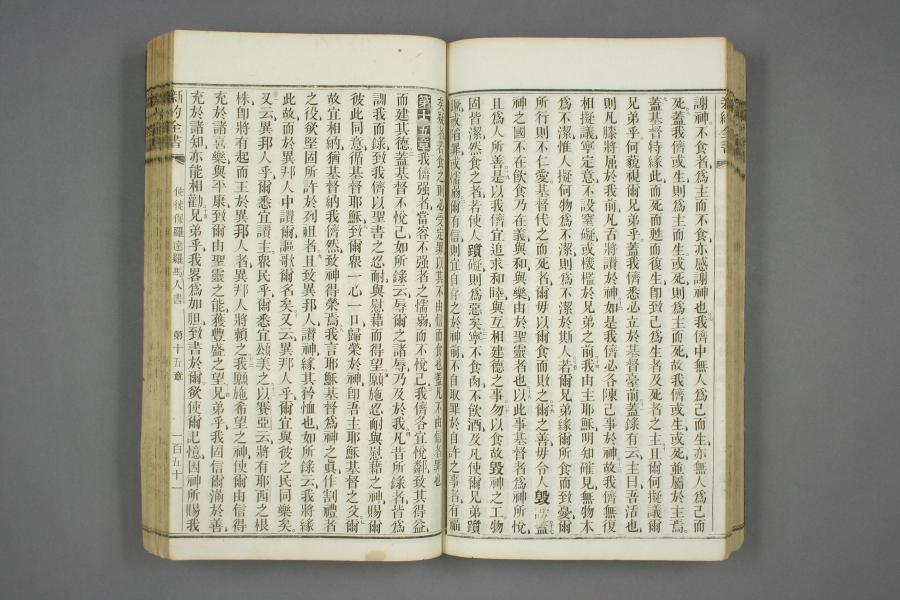 謝神不食者爲主而不食亦感謝神也我儕中無人爲己而生亦無人爲己而
死蓋我儕或生則爲主而生或死則爲主而死故我儕或生或死並屬於主焉
蓋基督特緣此而死而甦而復生卽致己爲生者及死者之主且爾何擬議爾
兄弟乎何藐視爾兄弟乎蓋我儕悉必立於基督臺前蓋錄有云主曰吾活也
則凡膝將屈於我前凡舌將讚於神如是我儕必各陳己事於神故我儕無復
相擬議寧定意不設窒礙或檻於兄弟之前我由主耶穌明知確見無物本
爲不潔惟人擬何物爲不潔則爲不潔於斯人若爾兄弟緣爾所食而致憂爾
所行則不仁愛基督代之而死者爾毋以爾食而敗之爾之善毋令人毀
神之國不在飲食乃在義與和與樂由於聖靈者也以此事基督者爲神所悅
且爲人所善是以我儕宜追求和睦與互相建德之事勿以食故毀神之工物
固皆潔然食之者若使人躓礙則爲惡矣寧不食肉不飲酒及凡使爾兄弟躓
礙或陷罪或懦弱爾有信則宜自存之於神前不自取罪於自許之事者有福
矣疑者若食之則必受定罪以其不由信而食也蓋凡不由信者罪也
第十五章我儕强者當容不强者之懦弱而不悅己我儕各宜悅鄰致其得益
而建其德蓋基督不悅己如所錄云辱爾之諸辱乃及於我凡昔所錄者皆爲
訓我而錄致我儕以聖書之忍耐與慰藉而得望願施忍耐與慰藉之神賜爾
彼此同意循基督耶穌致爾衆一心一口歸榮於神卽吾主耶穌基督之父爾
故宜相納猶基督納我儕然致神得榮焉我言耶穌基督爲神之眞作割禮者
之役欲堅固所許於列祖者且致異邦人讚神緣其矜恤也如所錄云我將緣
此故而於異邦人中讚爾謳歌爾名矣又云異邦人乎爾宜與彼之民同樂矣
又云異邦人乎爾悉宜讚主衆民乎爾悉宜頌美之以賽亞云將有耶西之根
株卽將有起而王於異邦人者異邦人將賴之我願施希望之神使爾由信得
充於諸喜樂與平康致爾由聖靈之能獲豐盛之望兄弟乎我固信爾滿於善
充於諸知亦能相勸兄弟乎我畧爲如胆致書於爾欲使爾記憶因神所賜我
新約全書
使徒保羅達羅馬人書
第十五章
一百五十